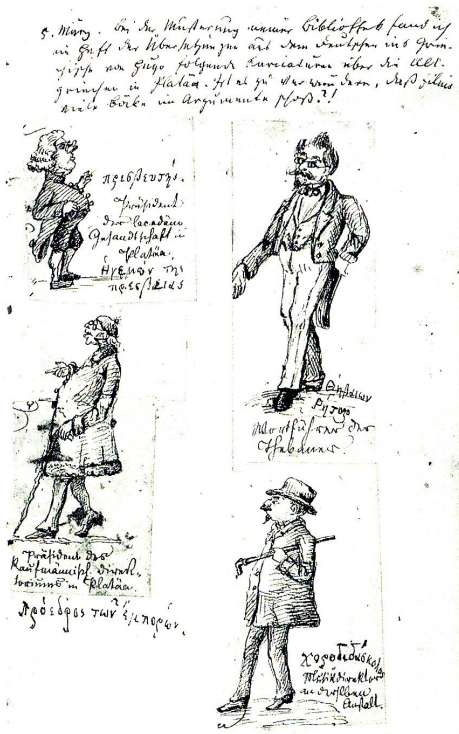 5. März. Bei der Musterung meiner Bibliothek fand ich
im Heft der Übersetzungen aus dem Deutschen ins Grie-
chische von Hugo folgende Karikaturen über die Alt-
griechen in Platäa. Ist es zu verwundern, daß
viele Böcke im Argumente schoß?!
πρεσβευτής.
Präsident
der
Gesandtschaft in
Platäa.
Ηγεμων της
πρεσβειας
Θηβαίων
Ρητωρ
Wortführer der
Thebaner
Präsident des
Kaufmännisch. Direk-
toriums in Platäa.
Πρόεδρος τῶν ἐμπορῶν.
Χοροδιδάσκαλος
Musikdirektor
an derselben
Anstalt.